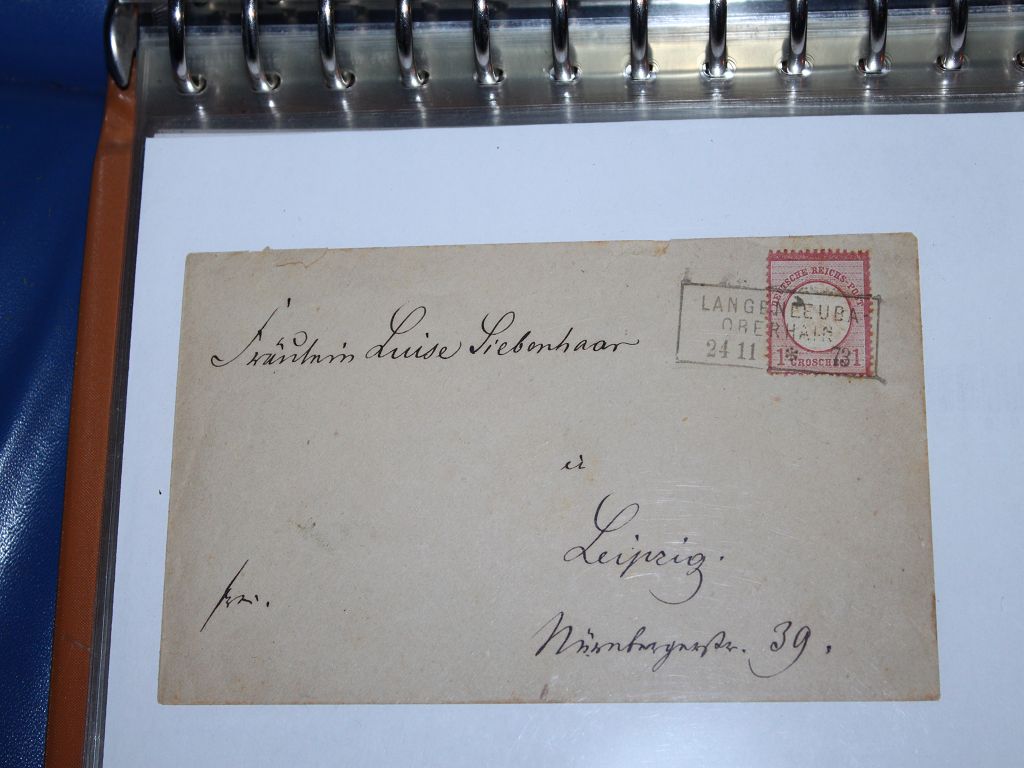 Fräulein Luise Siebenhaar
DEUTSCHE REICHS-POST
LANGENLEUBA
OBERHAIN
24 11 * 73
1 GROSCHEN 1
in
Leipzig.
frei.
Nürnbergerstr. 39.